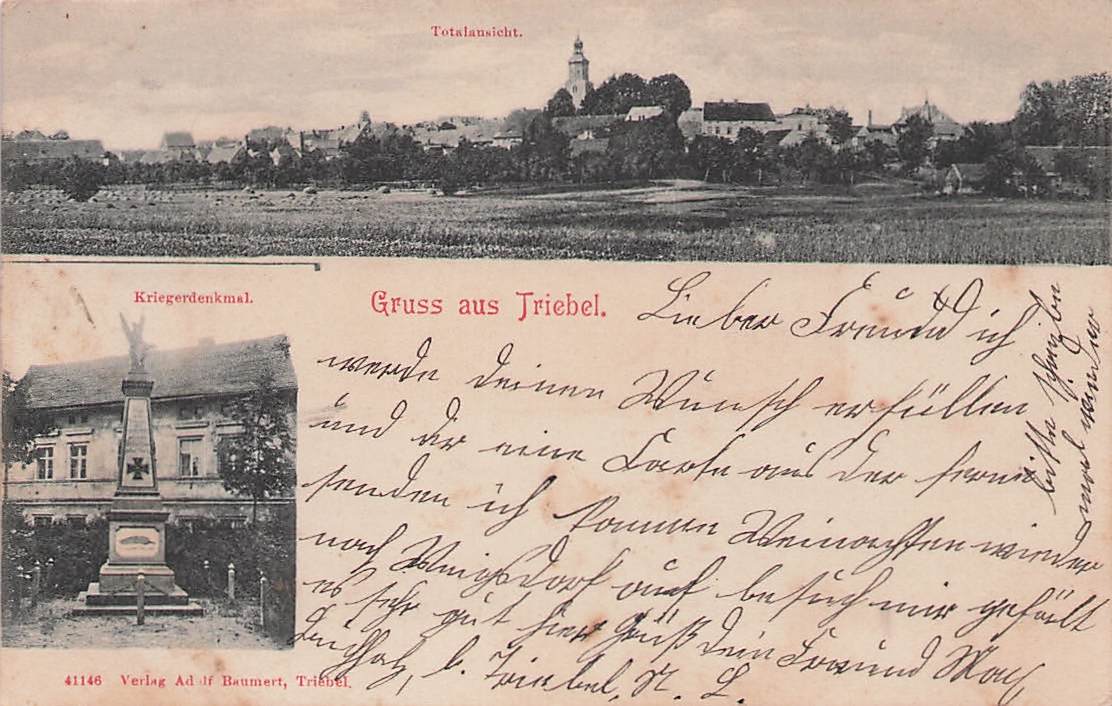 Totalansicht.
Kriegerdenkmal.
Gruss aus Triebel.
Lieber Freund ich
werde deinen Wunsch erfüllen
und dir eine Carte aus der ferne
senden ich komme Weinachten wieder
nach Weigsdorf auf besuch mir gefält
es sehr gut hier Gruß dein Freund Max
Buchholz, b. Triebel, N. L.
bitte schreibe
mal wieder
41146 Verlag Adolf Baumert, Triebel.